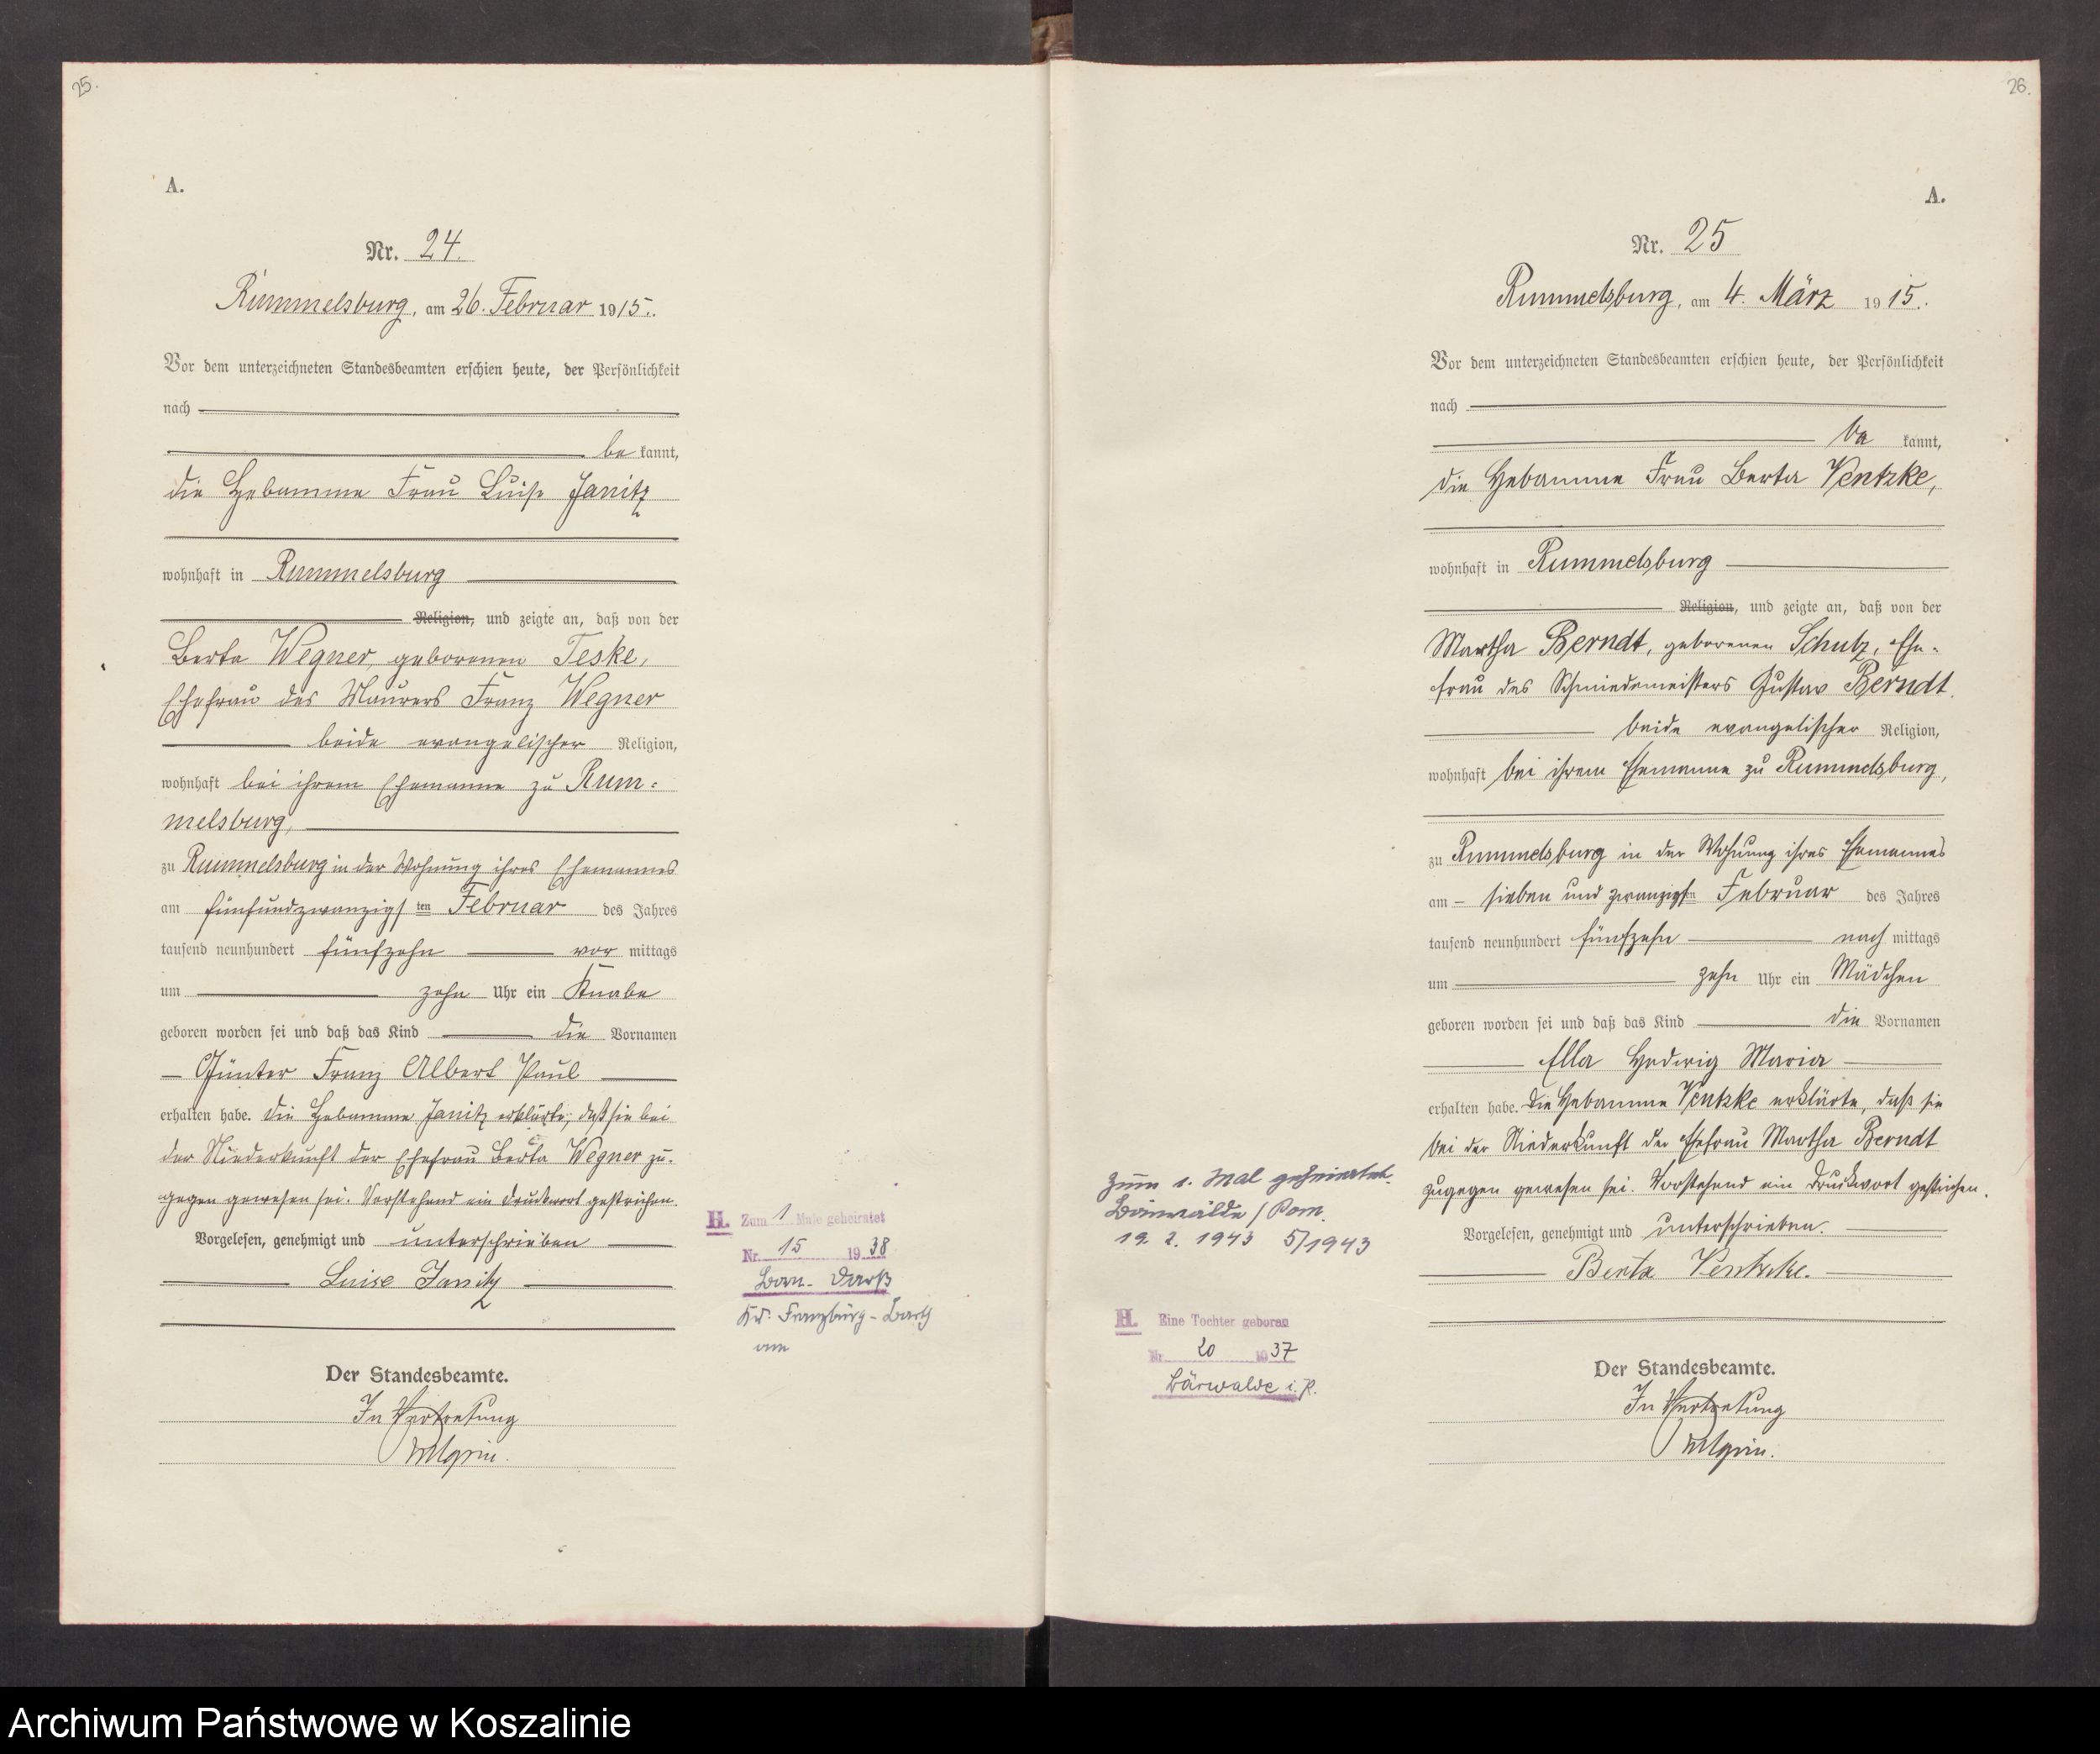 25.
A.
Nr. 24.
Rummelsburg, am 26. Februar 1915.
Vor dem unterzeichneten Standesbeamten erschien heute, der Persönlichkeit
nach
be kannt,
die Hebamme Frau Luise Janitz
wohnhaft in Rummelsburg
Religion, und zeigte an, daß von der
Berta Wegner, geborenen Teske,
Ehefrau des Maurers Franz Wegner
beide evangelischer Religion,
wohnhaft bei ihrem Ehemanne zu Rum=
melsburg,
zu Rummelsburg in der Wohnung ihres Ehemannes
am fünfundzwanzigsten Februar des Jahres
tausend neunhundert fünfzehn vor mittags
um zehn Uhr ein Knabe
geboren worden sei und daß das Kind die Vornamen
Günter Franz Albert Paul
erhalten habe. Die Hebamme Janitz erklärte, daß sie bei
der Niederkunft der Ehefrau Berta Wegner zu-
gegen gewesen sei. Vorstehend ein Druckwort gestrichen.
Vorgelesen, genehmigt und unterschrieben
Luise Janitz
Der Standesbeamte.
In Vertretung
H. Zum 1 Male geheiratet
Nr. 15 1938
Born-Darß
Kr. Franzburg-Barth
26.
A.
Nr. 25
Rummelsburg, am 4. März 1915.
Vor dem unterzeichneten Standesbeamten erschien heute, der Persönlichkeit
nach
be kannt,
die Hebamme Frau Berta Ventzke,
wohnhaft in Rummelsburg
Religion, und zeigte an, daß von der
Martha Berndt, geborenen Schulz, Ehe-
frau des Schmiedemeisters Gustav Berndt,
beide evangelischer Religion,
wohnhaft bei ihrem Ehemanne zu Rummelsburg,
zu Rummelsburg in der Wohnung ihres Ehemannes
am sieben und zwanzigsten Februar des Jahres
tausend neunhundert fünfzehn nach mittags
um zehn Uhr ein Mädchen
geboren worden sei und daß das Kind die Vornamen
Ella Hedwig Maria
erhalten habe. Die Hebamme Ventzke erklärte, daß sie
bei der Niederkunft der Ehefrau Martha Berndt
zugegen gewesen sei. Vorstehend ein Druckwort gestrichen.
Vorgelesen, genehmigt und unterschrieben.
Berta Ventzke.
Der Standesbeamte.
In Vertretung
Zum 1. Mal geheiratet
Bärwalde / Pom.
19. 2. 1943 5/1943
H. Eine Tochter geboren
Nr. 20 1937
Bärwalde i. P.
Archiwum Państwowe w Koszalinie